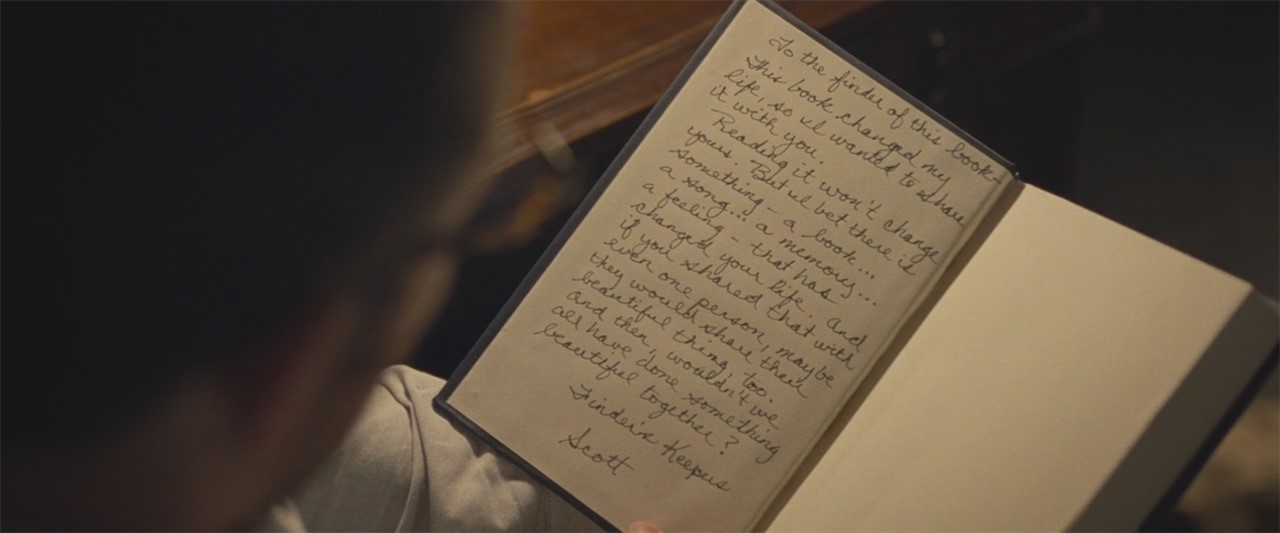 To the finder of this book-
This book changed my
life, so I wanted to share
it with you.
Reading it won't change
yours. But I bet there is
something - a book...
a song... a memory...
a feeling - that has
changed your life. And
if you shared that with
even one person, maybe
they would share their
beautiful thing, too.
And then, wouldn't we
all have done something
beautiful together?
Finders Keepers
Scott